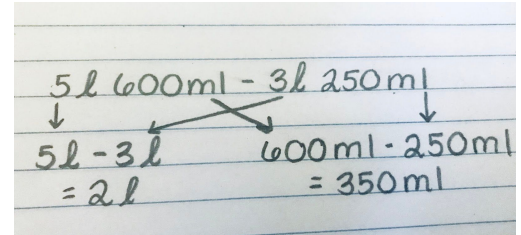 5l 600ml - 3l 250ml
5l - 3l 600ml - 250ml
= 2l = 350ml